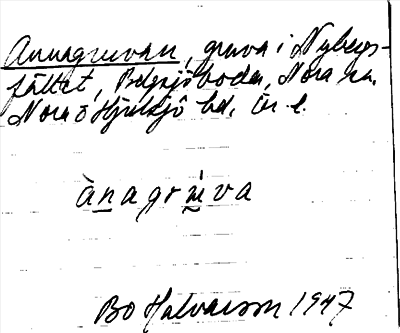 Annagruvan, gruva i Nybergs-
fältet, Pershyttebodar, Nora sn.
Nora o Hjulsjö bd, Ör l.
ànagrúva
Bo Halvarson 1947